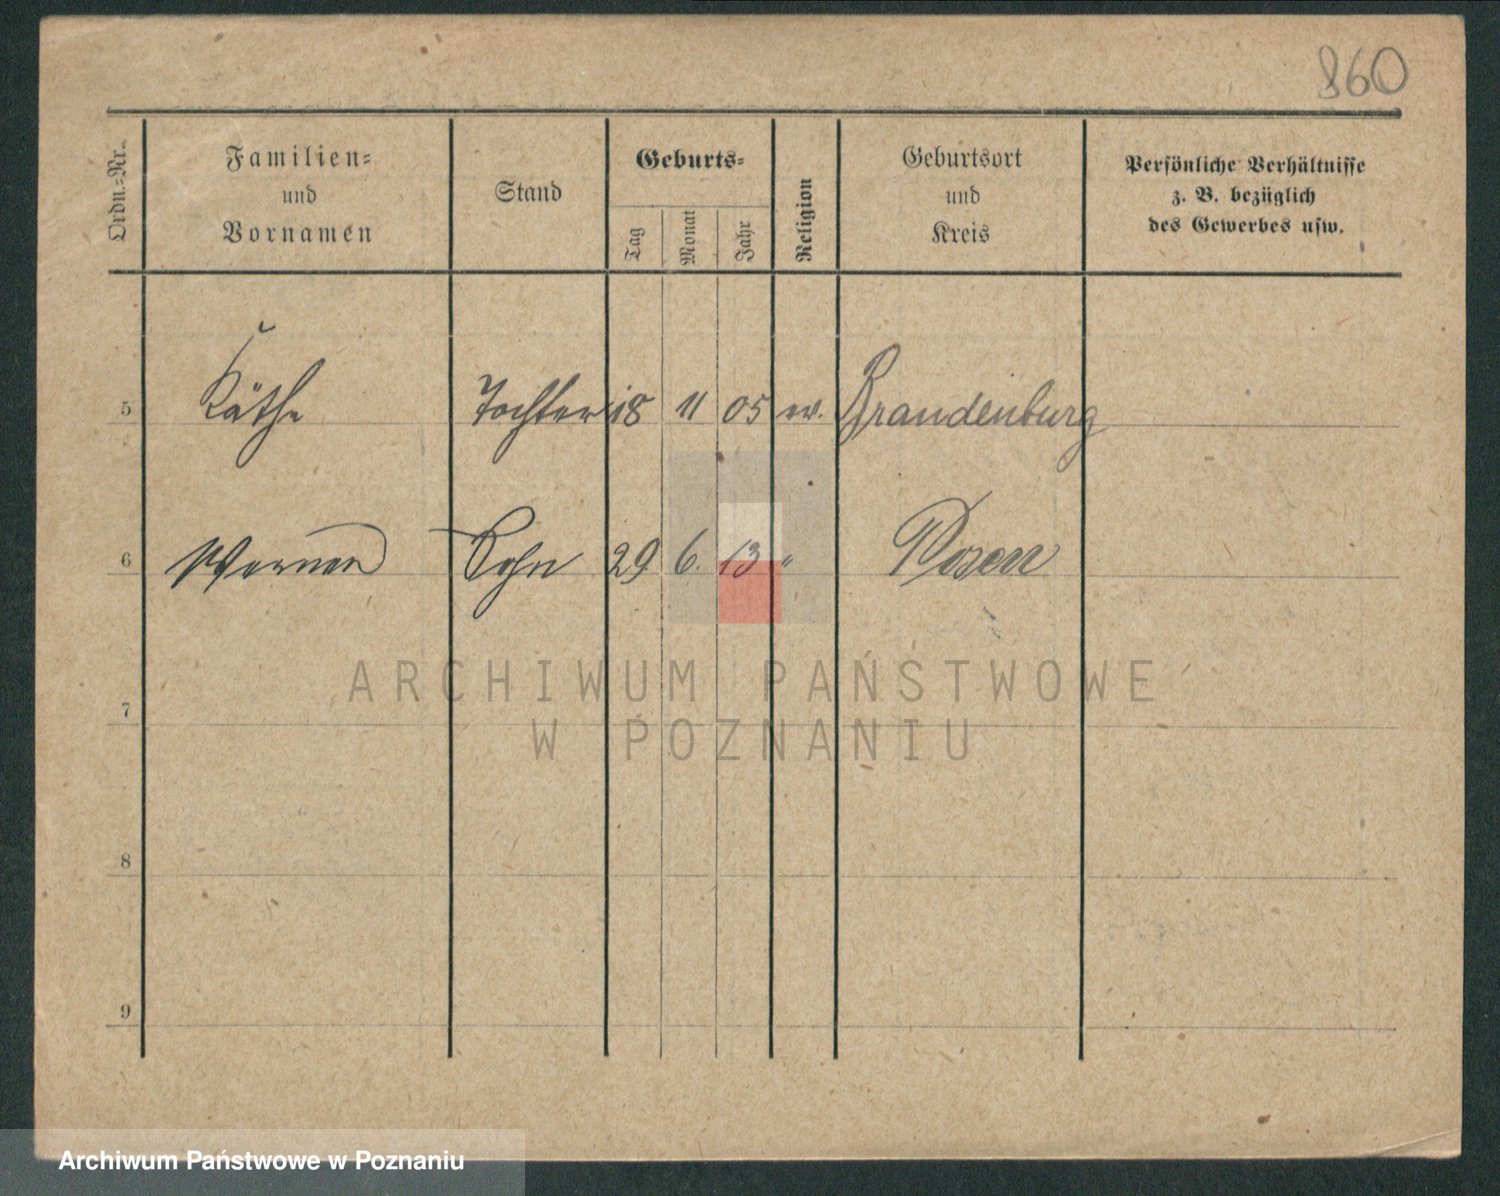 860
Ordn.-Nr.
Familien-
und
Vornamen
Stand
Geburts-
Tag
Monat
Jahr
Religion
Geburtsort
und
Kreis
Persönliche Verhältnisse
z. B. bezüglich
des Gewerbes usw.
5 Käthe Tochter 18 11 05 ev. Brandenburg
6 Werner Sohn 29. 6. 13 " Posen
ARCHIWUM PAŃSTWOWE
W POZNANIU
7
8
9
Archiwum Państwowe w Poznaniu